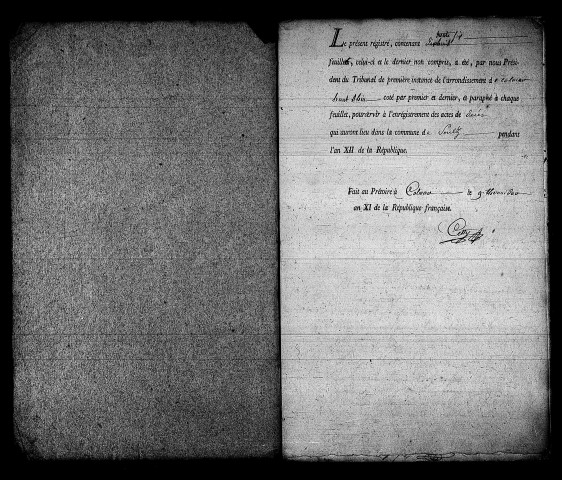 Le présent registre, contenant
feuillets, celui-ci et le dernier non compris, a été, par nous Prési-
dent du Tribunal de première instance de l'arrondissement de Colmar
haut Rhin coté par premier et dernier, et paraphé à chaque
feuillet, pour servir à l'enregistrement des actes de Décès
qui auront lieu dans la commune de Soultz pendant
l'an XII de la République.
Fait au Prétoire à Colmar le 9 thermidor
an XI de la République française.